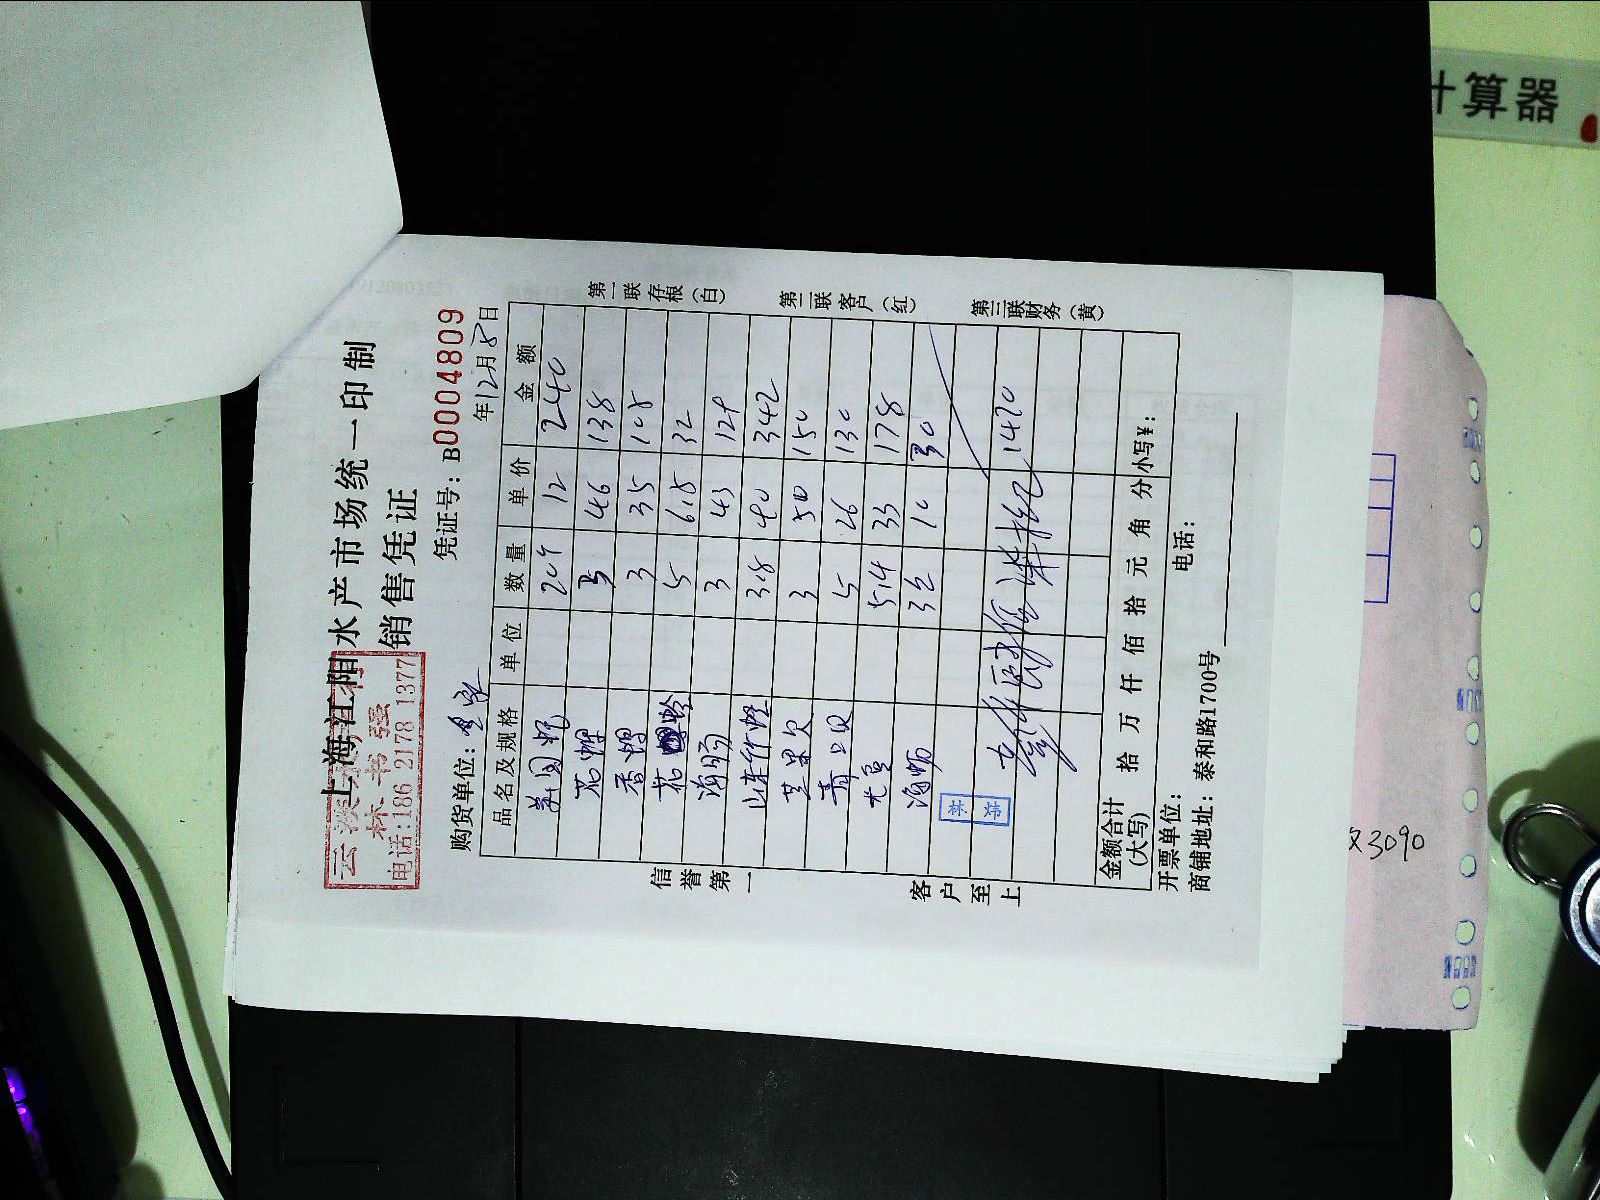 上海江阳水产市场统一印制
销售凭证
林书强
电话:186 2178 1377
凭证号: B0004809
购货单位:
年12月8日
品名及规格 单位 数量 单价 金额
美国 20个 12 240
花 3 46 138
香 3 35 105
花 蛤 5 6.5 32
海肠 3 43 129
山东竹蛏 3.8 90 342
芒果贝 3 50 150
青口贝 5 26 130
5.4 33 178
海蛎 3 10 30
1470
金额合计(大写) 拾 万 仟 佰 拾 元 角 分 小写¥:
开票单位: 电话:
商铺地址: 泰和路1700号
信誉第一
客户至上
第一联存根(白)
第二联客户(红)
第三联财务(黄)
计算器
3090